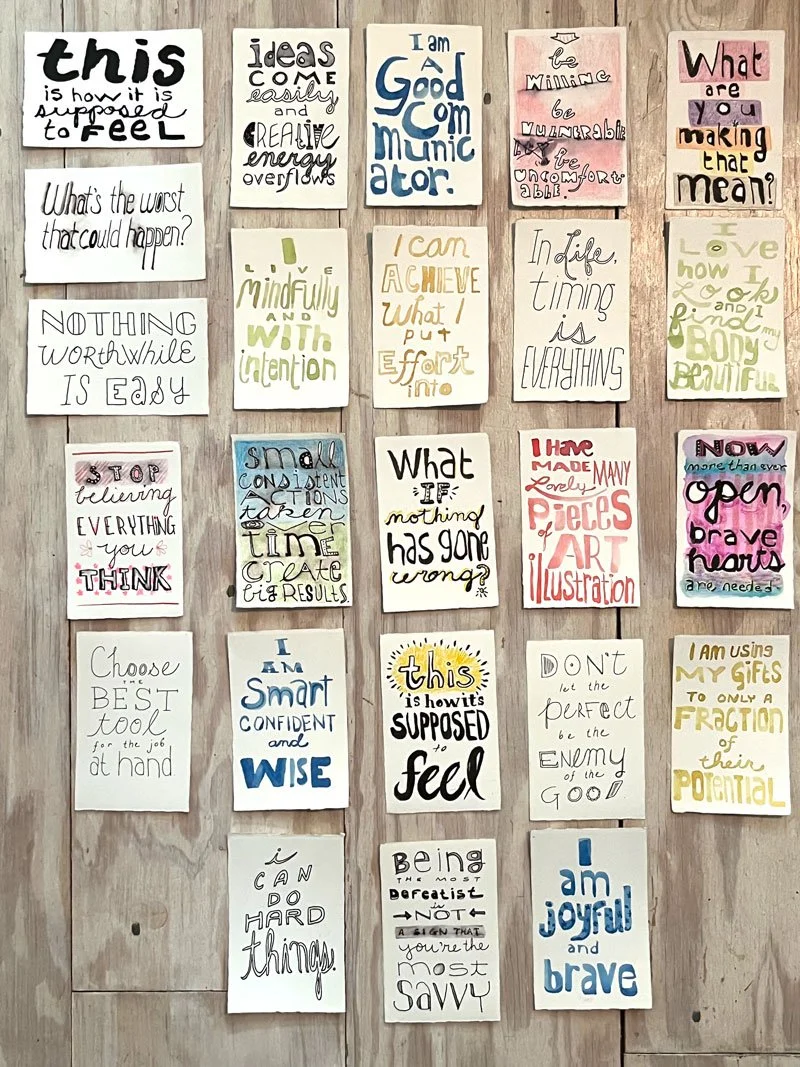 this
is how it is
supposed
to FEEL
ideas
COME
easily
and
CREATIVE
energy
overflows
I am
A
Good
Com
munic
ator.
be
Willing
be
Vulnerable
be
uncomfort
able.
What
are
you
making
that
mean?
What's the worst
that could happen?
NOTHING
WORTHWHILE
IS EASY
I
LIVE
mindfully
AND
WITH
intention
I can
ACHIEVE
What I
put
Effort
into
In Life,
timing
is
EVERYTHING
I
LOVE
how I
Look
AND I
find my
BODY
BEAUTIFUL
STOP
believing
EVERYTHING
you
THINK
small
CONSISTENT
ACTIONS
taken
over
time
create
big RESULTS.
What
IF
nothing
has gone
wrong?
I HAVE
MADE MANY
Lovely
PIECES
of ART
illustration
NOW
more than ever
open,
brave
hearts
are needed
Choose
THE
BEST
tool
for the job
at hand
I
AM
Smart
CONFIDENT
and
WISE
this
is how it's
SUPPOSED
to
feel
DON'T
let the
PERFECT
be the
ENEMY
of the
GOOD
I AM USING
MY GIFTS
TO ONLY A
FRACTION
of
their
POTENTIAL
i
CAN
DO
HARD
things.
Being
THE MOST
Defeatist
is
NOT
A SIGN THAT
you're the
most
SAVVY
I
am
joyful
and
brave